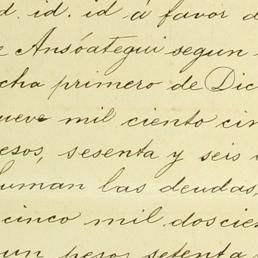 d. id. id á favor d
e Ansóategui segun
cha primero de Dic
ueve mil ciento cin
esos, sesenta y seis
suman las deudas,
cinco mil doscien
un peso setenta